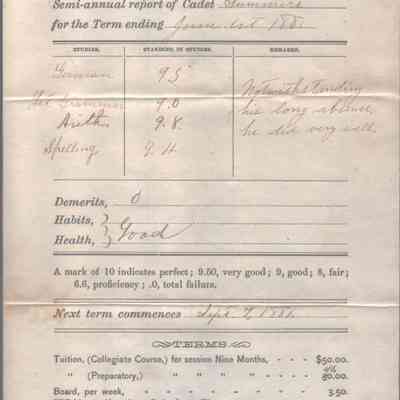 Semi-annual report of Cadet Summers
for the Term ending June 1st 188
STUDIES. STANDING IN STUDIES. REMARKS.
German 9.5
Grammar 9.0
Arith 9.8
Spelling 9.4
Notwithstanding
his long absence
he did very well.
Demerits, 0
Habits,
Health, } Good
A mark of 10 indicates perfect; 9.50, very good; 9, good; 8, fair;
6.6, proficiency; .0, total failure.
Next term commences Sept 7, 1881.
TERMS
Tuition, (Collegiate Course,) for session Nine Months, - - - $50.00.
" (Preparatory,) " " " - - 30.00.
Board, per week, 3.50.